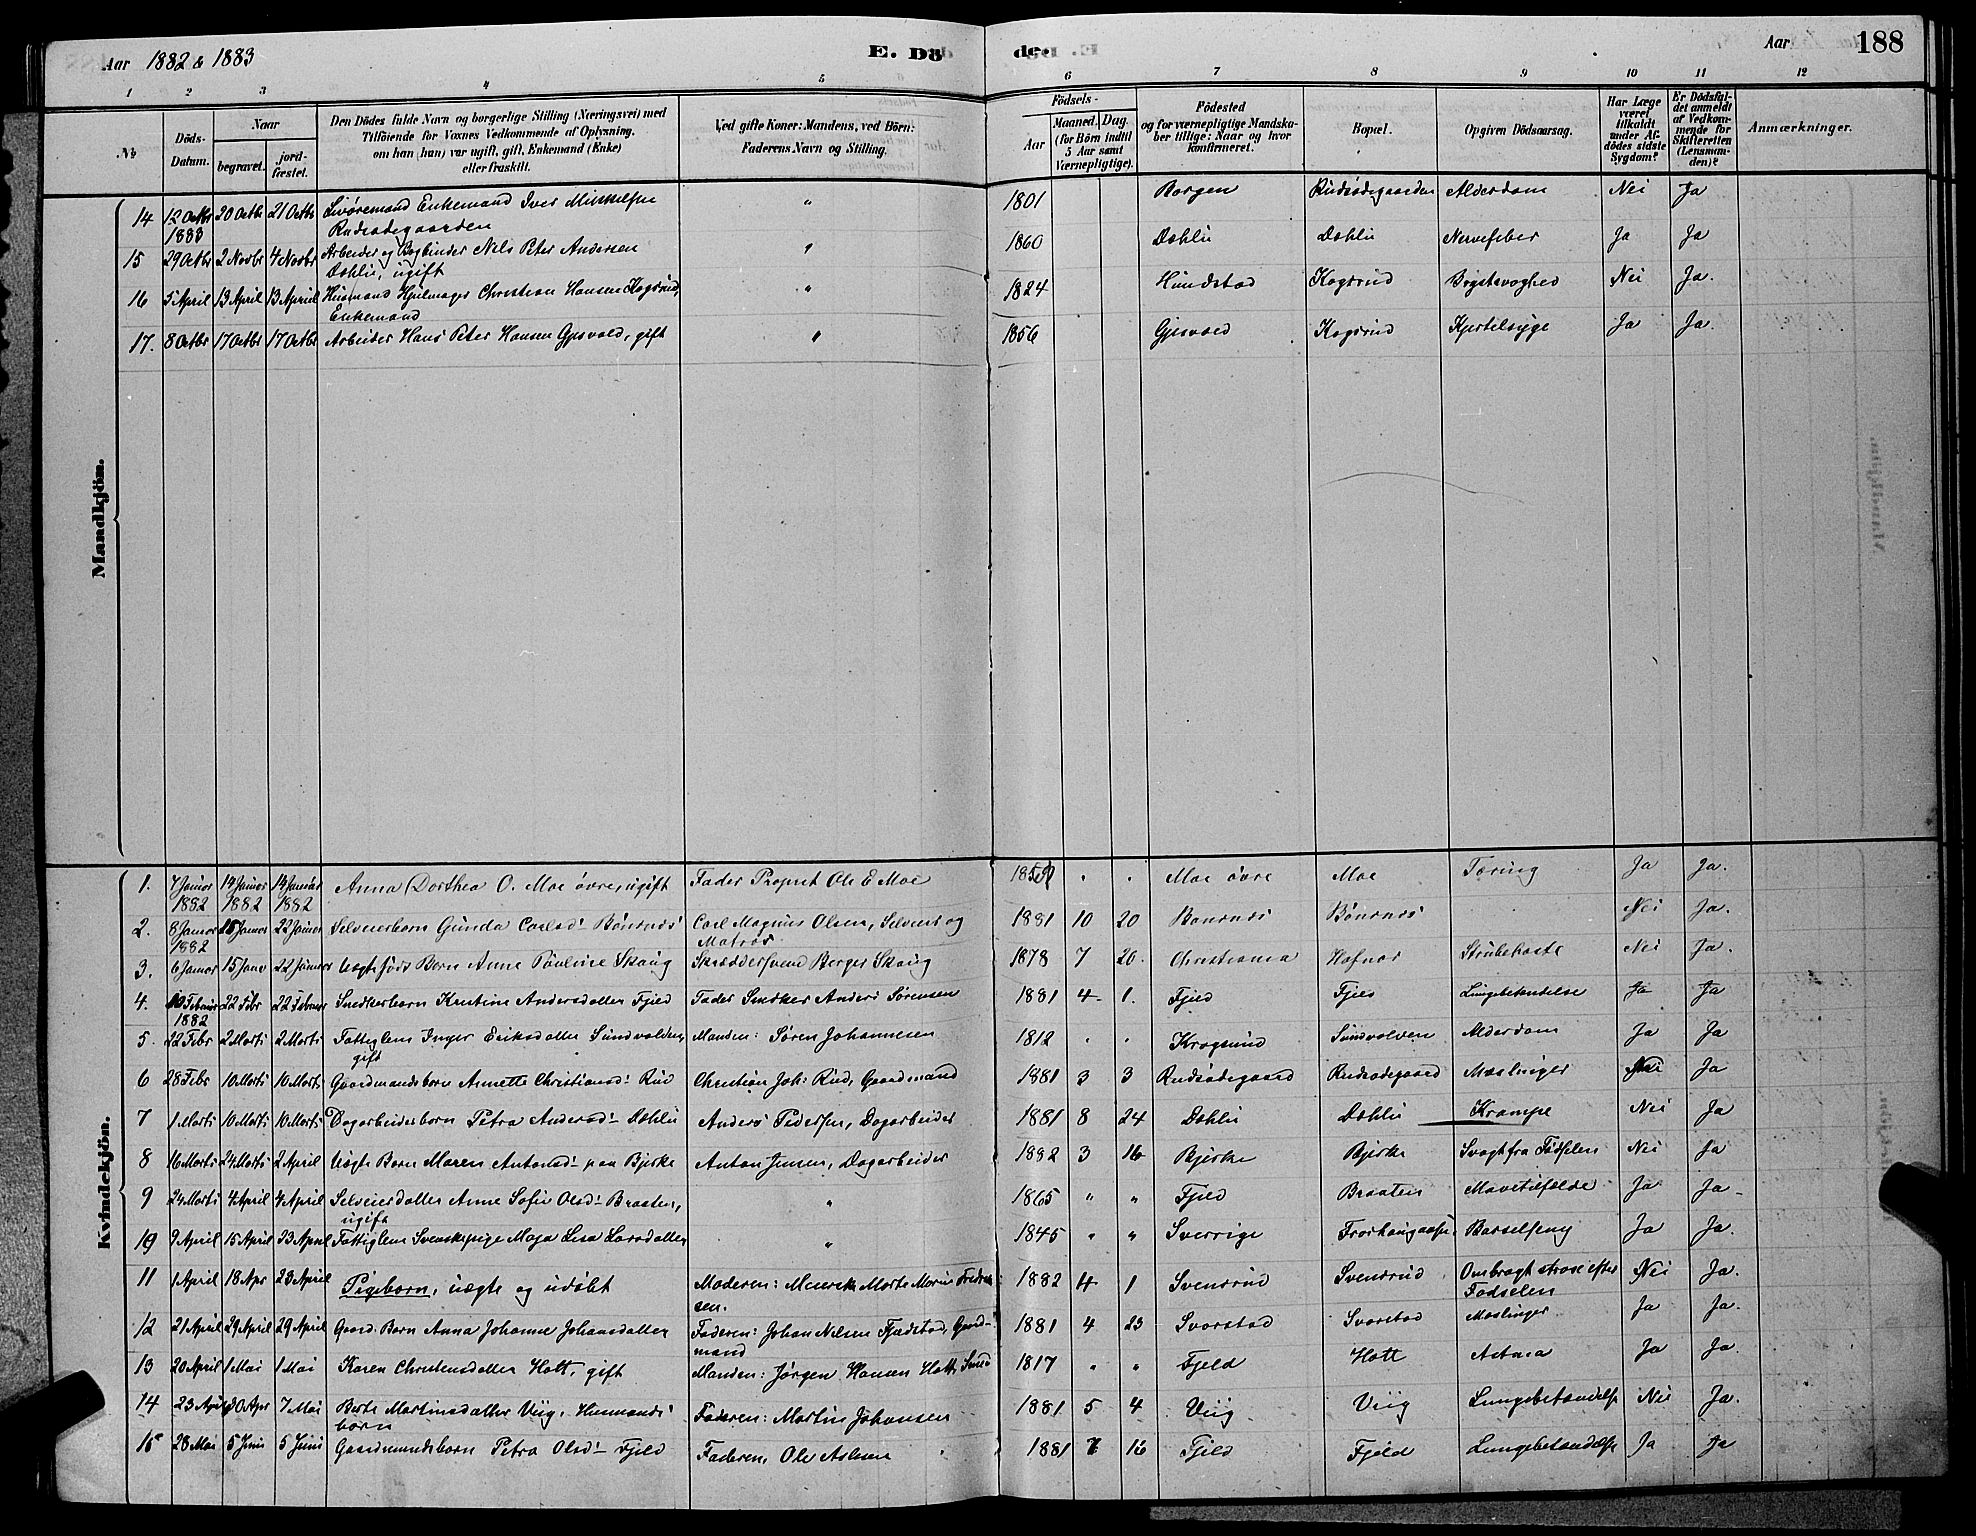 Aar 1882 & 1883 E. Dö
döde. E. Aar 188
1 2 3 4 5 6 7 8 9 10 11 12
№
Döds-Datum.
Naar
begravet.
jordfæstet.
Den Dödes fulde Navn og borgerlige Stilling (Næringsvei) med
Tilföiende for Voxnes Vedkommende af Oplysning,
om han (hun) var ugift, gift, Enkemand (Enke)
eller fraskilt.
Ved gifte Koner: Mandens, ved Börn:
Faderens Navn og Stilling.
Födsels-
Aar
Maaned. Dag.
(for Börn indtil
5 Aar samt
Værnepligtige).
Födested
og for værnepligtige Mandskaber tillige: Naar og hvor
konfirmeret.
Bopæl.
Opgiven Dödsaarsag.
Har Læge
været
tilkaldt
under Afdödes sidste
Sygdom?
Er Dödsfaldet anmeldt
af Vedkommende for
Skifteretten
(Lensmanden)?
Anmærkninger.
Mandkjön.
14 12 Octbr 1883 20 Octbr 21 Octbr Enkemand Iver 〃 1801 Borgen Rudsødegaarden Alderdom Nei Ja
Rudsødegaarden
15 29 Octbr 2 Novbr 4 Novbr Arbeider og Bogbinder Nils Peter Andersen 〃 1860 Dæhlie Dæhlie Nervefeber Ja Ja
Dæhlie, ugift
16 5 April 13 April 13 April Husmand Hjulmager Christian Hansen Kogsrud, 〃 1824 Hundstad Kogsrud Brystsvaghed Nei Ja.
Enkemand
17. 8 Octbr 17 Octbr 17 Octbr Arbeider Hans Peter Hansen Gjesvold, gift 〃 1856 Gjesvold Kogsrud Kjertelsyge Ja Ja.
Kvindekjön.
1. 7 Januar 1882 14 Januar 1882 14 Januar 1882 Anna Dorthea O. Moe øvre, ugift Fader Propriet Ole E Moe 〃 〃 Moe øvre Moe Tæring Ja Ja.
2. 8 Januar 1882 15 Januar 22 Januar Selveierbarn Gunda Carlsd. Bönsnæs Carl Magnus Olsen, Selveier og 1881 10 20 Bönsnæs Bönsnæs Nei Ja.
Matros
3. 6 Januar 15 Janr 22 Januar Uægtefødt Barn Anne Pauline Skaug Skræddersvend Berger Skaug 1878 7 26. Christiania Hafnor Strubehoste Nei Ja.
4. 10 Februar 1882 22 Febr 22 Februar Snedkerbarn Kristine Andersdatter Fjeld Fader Snedker Anders Sørensen 1881 4 1. Fjeld Fjeld Lungebetændelse Ja Ja
5. 22 Febr 2 Marts 2 Marts Fattiglem Inger Eriksdatter Sundvolden, Manden: Søren Johannesen 1812 〃 〃 Krogsund Sundvolden Alderdom Ja Ja
gift
6 28 Febr 10 Marts 10 Marts Gaardmandsbarn Annette Christiansd: Rud Christian Joh: Rud, Gaardmand 1881 3 3 Rudsødegaard Rudsødegaard Mæslinger Nei Ja
7 1 Marts 10 Marts 10 Marts Dagarbeiderbarn Petra Andersd: Dæhlie Anders Pedersen, Dagarbeider 1881 8 24 Dæhlie Dæhlie Krampe Nei Ja
8 16 Marts 24 Marts 2 April Uægte Barn Maren Antonsd: paa Bjerke Anton Jensen, Dagarbeider 1882 3 16 Bjerke Bjerke Svagt fra Fødselen Nei Ja
9 24 Marts 4 April 4 April Selveierdatter Anne Sofie Olsd: Braaten, 〃 1865 〃 〃 Fjeld Braaten Mavetilfælde Ja Ja
ugift
10 9 April 15 April 23 April Fattiglem Svenskepige Maja Lisa Larsdatter 〃 1845 〃 〃 Sverrige Barselseng Ja Ja.
11 1 April 18 Apr 23 April Pigebarn, uægte og udøbt Moderen: Marte Marie Fredriksen. 1882 4 1 Svensrud Svensrud Ombragt strax efter Nei Ja.
Fødselen
12 21 April 29 April 29 April Gaard. Barn Anna Johanne Johansdatter Faderen: Johan Nilsen Fjeldstad, Gaardmand 1881 4 23 Svarstad Svarstad Mæslinger Ja Ja.
13 20 April 1 Mai 1 Mai Karen Christensdatter Hott, gift Manden: Jørgen Hansen Hott, Smed 1817 〃 〃 Fjeld Hott Astma Ja Ja.
14 23 April 30 Apr 7 Mai Berte Martinsdatter Viig, Husmandsbarn Faderen: Martin Johansen 1881 5 4 Viig Viig Lungebetændelse Nei Ja.
15 28 Mai 5 Juni 5 Juni Gaardmandsbarn Petra Olsd: Fjeld Faderen, Ole Aslesen 1881 7 16 Fjeld Fjeld Lungebetændelse Ja Ja